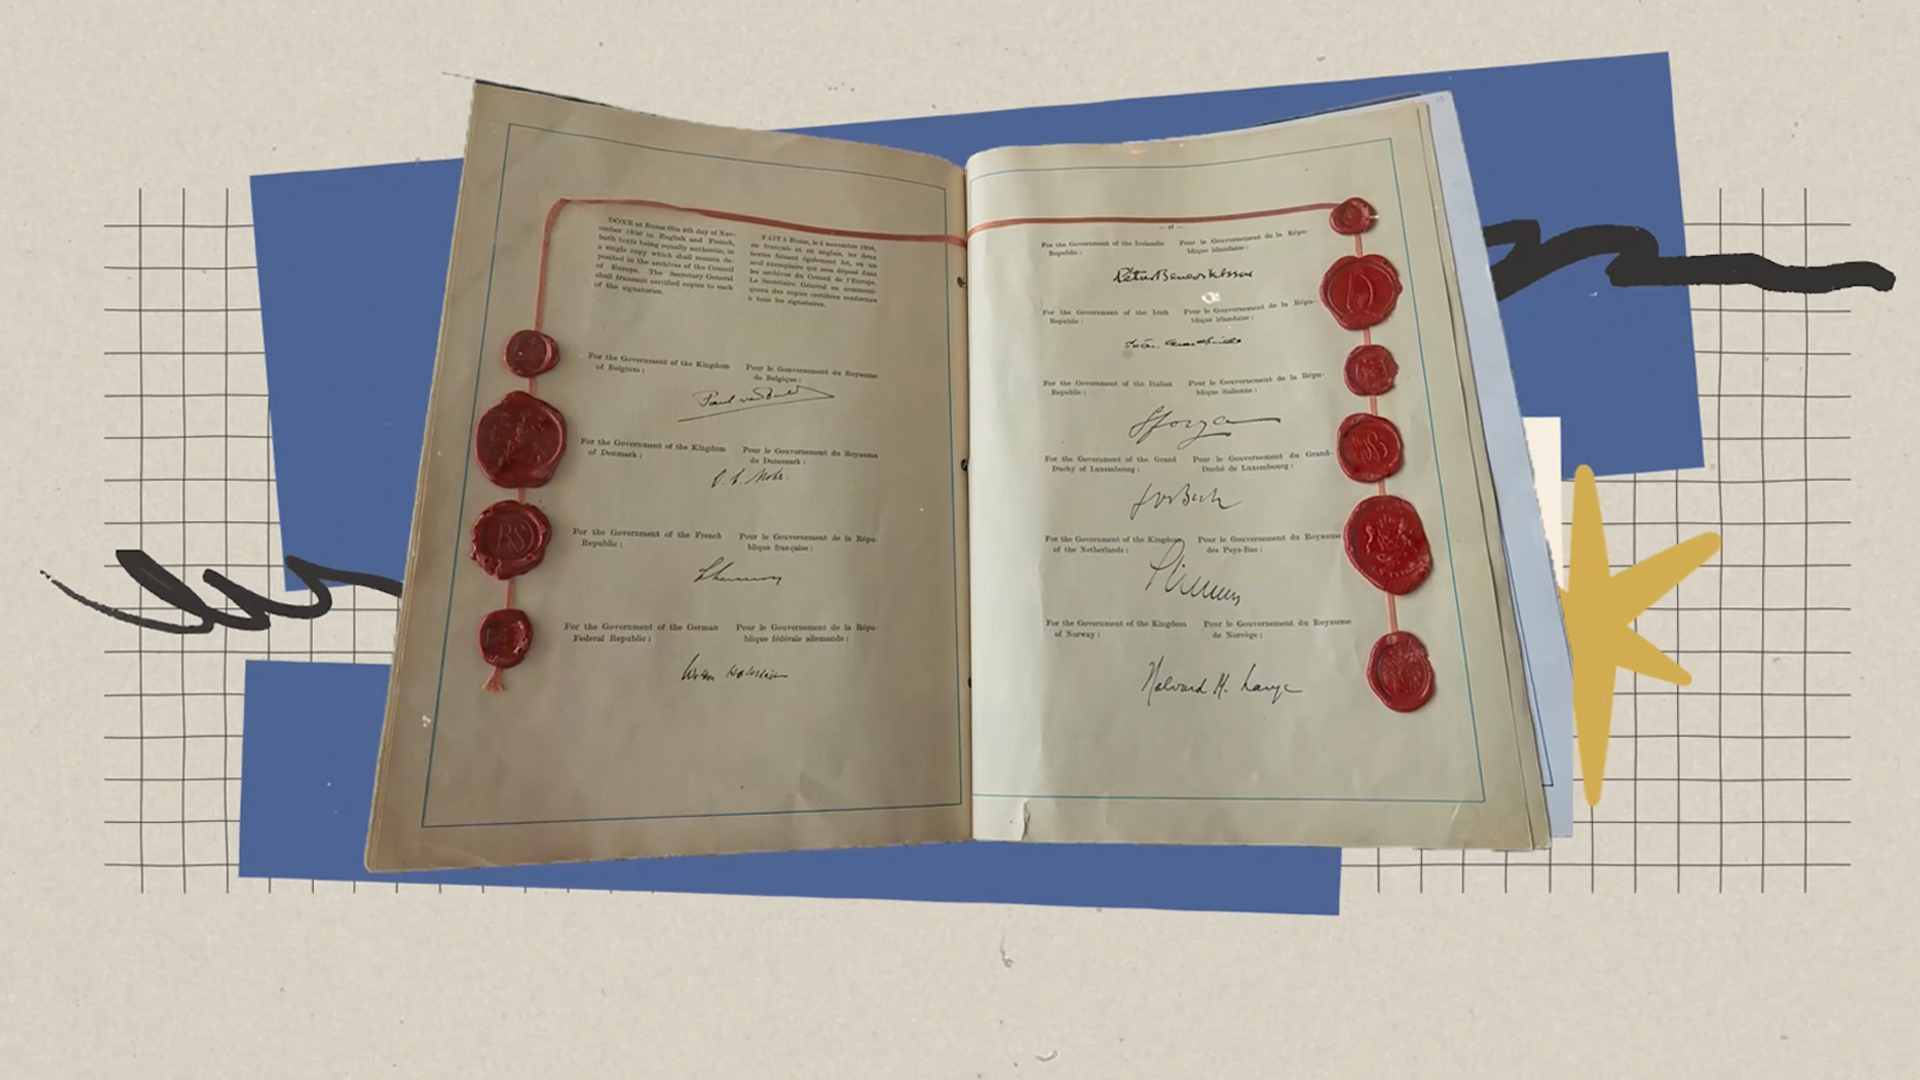 DONE at Rome this 4th day of Nov-
ember 1950 in English and French,
both texts being equally authentic, in
a single copy which shall remain de-
posited in the archives of the Council
of Europe. The Secretary-General
shall transmit certified copies to each
of the signatories.
FAIT à Rome, le 4 novembre 1950,
en français et en anglais, les deux
textes faisant également foi, en un
seul exemplaire qui sera déposé dans
les archives du Conseil de l'Europe.
Le Secrétaire Général en communi-
quera des copies certifiées conformes
à tous les signataires.
For the Government of the Kingdom
of Belgium:
Pour le Gouvernement du Royaume
de Belgique:
Paul van
For the Government of the Kingdom
of Denmark:
Pour le Gouvernement du Royaume
de Danemark:
For the Government of the French
Republic:
Pour le Gouvernement de la Répu-
blique française:
RS
For the Government of the German
Federal Republic:
Pour le Gouvernement de la Répu-
blique fédérale allemande:
— 17 —
For the Government of the Icelandic
Republic:
Pour le Gouvernement de la Répu-
blique islandaise:
For the Government of the Irish
Republic:
Pour le Gouvernement de la Répu-
blique irlandaise:
For the Government of the Italian
Republic:
Pour le Gouvernement de la Répu-
blique italienne:
Sforza
For the Government of the Grand
Duchy of Luxembourg:
Pour le Gouvernement du Grand-
Duché de Luxembourg:
For the Government of the Kingdom
of the Netherlands:
Pour le Gouvernement du Royaume
des Pays-Bas:
For the Government of the Kingdom
of Norway:
Pour le Gouvernement du Royaume
de Norvège:
Halvard M. Lange